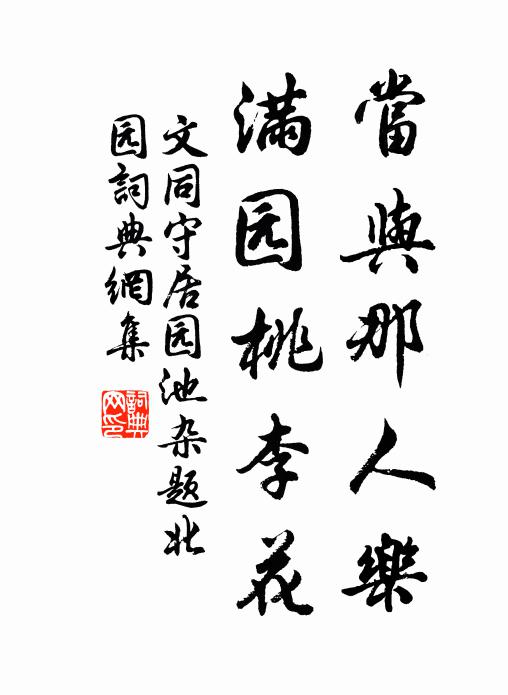 當與那人樂
满园桃李花
文同守居园池杂题北
园詞典網集
詞典
网印